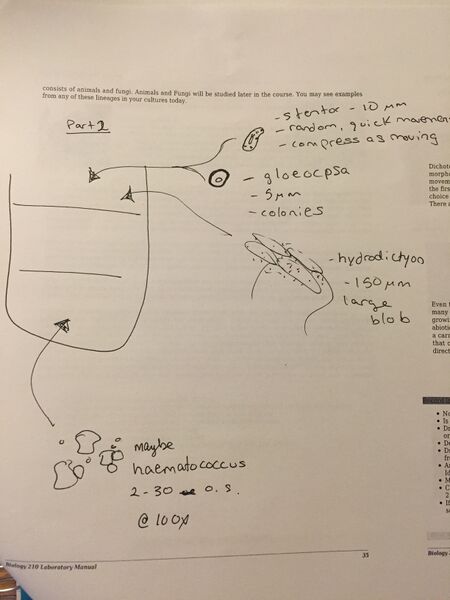 consists of animals and fungi. Animals and Fungi will be studied later in the course. You may see examples
from any of these lineages in your cultures today.
Part 2
- stentor - 10 µm
- random, quick movement
- compress as moving
- gloeocpsa
- 5 µm
- colonies
- hydrodictyon
- 150 µm
large
blob
maybe
haematococcus
2-30 o.s.
@ 100x
35
Biology 210 Laboratory Manual
Dichoto
morpho
movem
the firs
choice
There a
Even t
many
growi
abioti
a cari
that c
direct
Biology